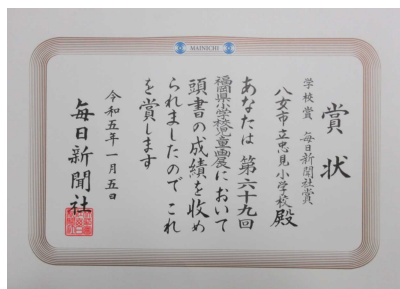 MAINICHI
賞状
学校賞 毎日新聞社賞
八女市立忠見小学校殿
あなたは 第六十九回
福岡県小学校児童画展において
頭書の成績を収め
られましたので これ
を賞します
令和五年一月五日
毎日新聞社